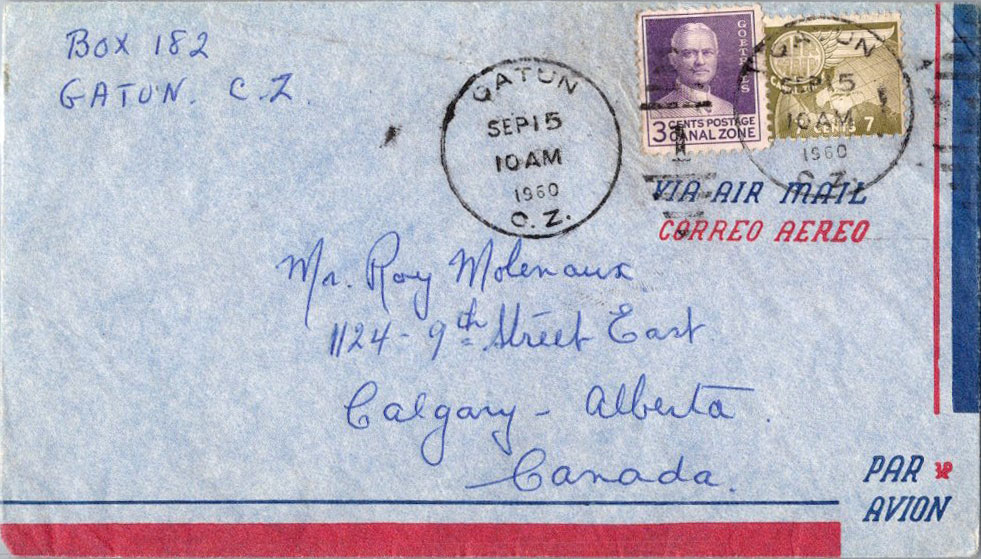 Box 182
GATUN. C.Z.
GATUN
SEP 15
10 AM
1960
C. Z.
GOETHALS
3 CENTS POSTAGE
CANAL ZONE
GATUN
SEP 15
10 AM
1960
C. Z.
CENTS 7
VIA AIR MAIL
CORREO AEREO
Mr. Roy Molenaux
1124 - 9th Street East
Calgary - Alberta.
Canada.
PAR
AVION